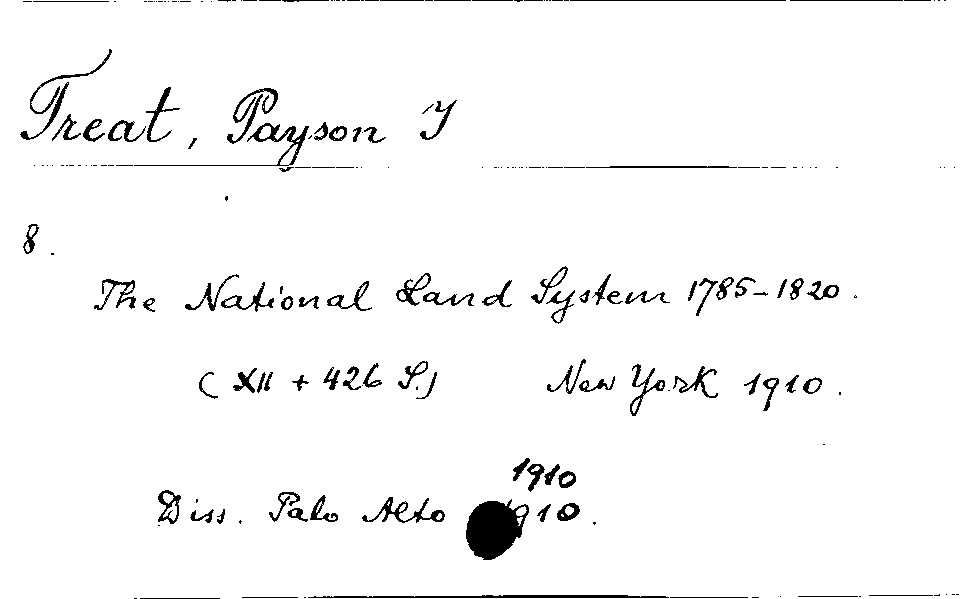 Treat, Payson J
8.
The National Land System 1785-1820.
(XII + 426 S.) New York 1910.
1910
Diss. Palo Alto 1910.